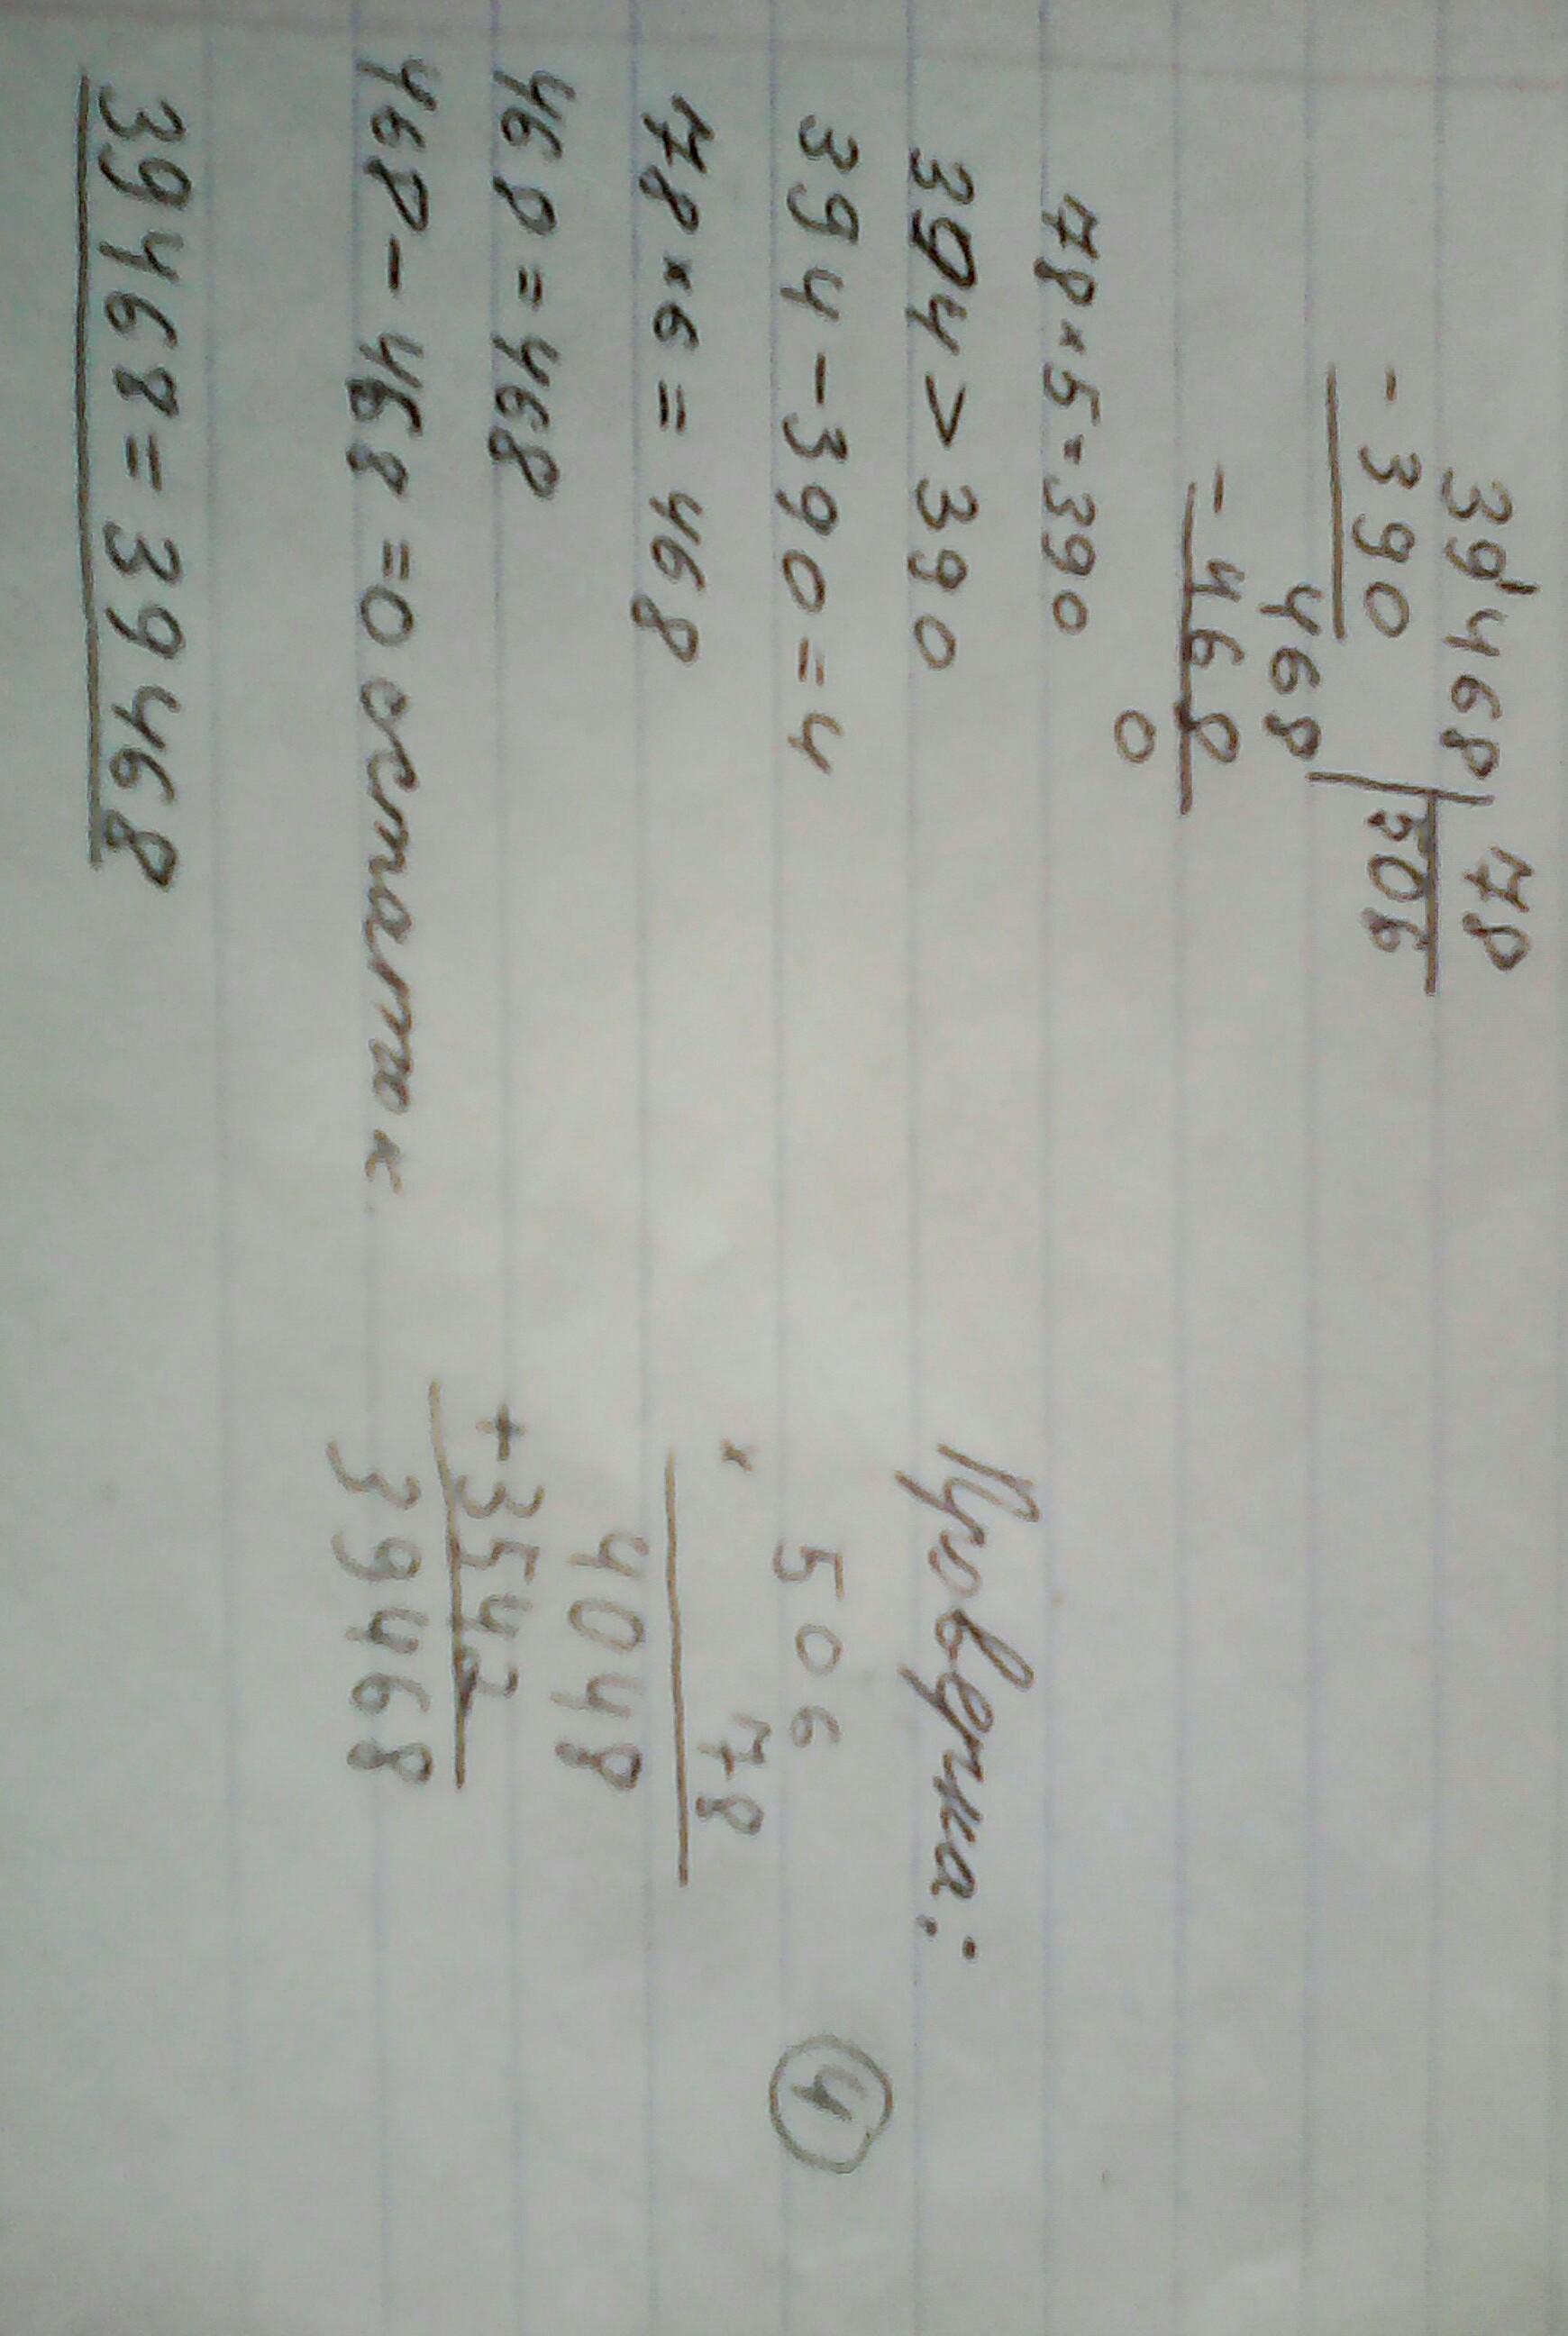 39'468 | 78
- 390 | 506
468
- 468
0
78 × 5 = 390
394 > 390
394 - 390 = 4
78 × 6 = 468
468 = 468
468 - 468 = 0 остаток
39468 = 39468
Проверка:
506
× 78
4048
+ 3542
39468
4